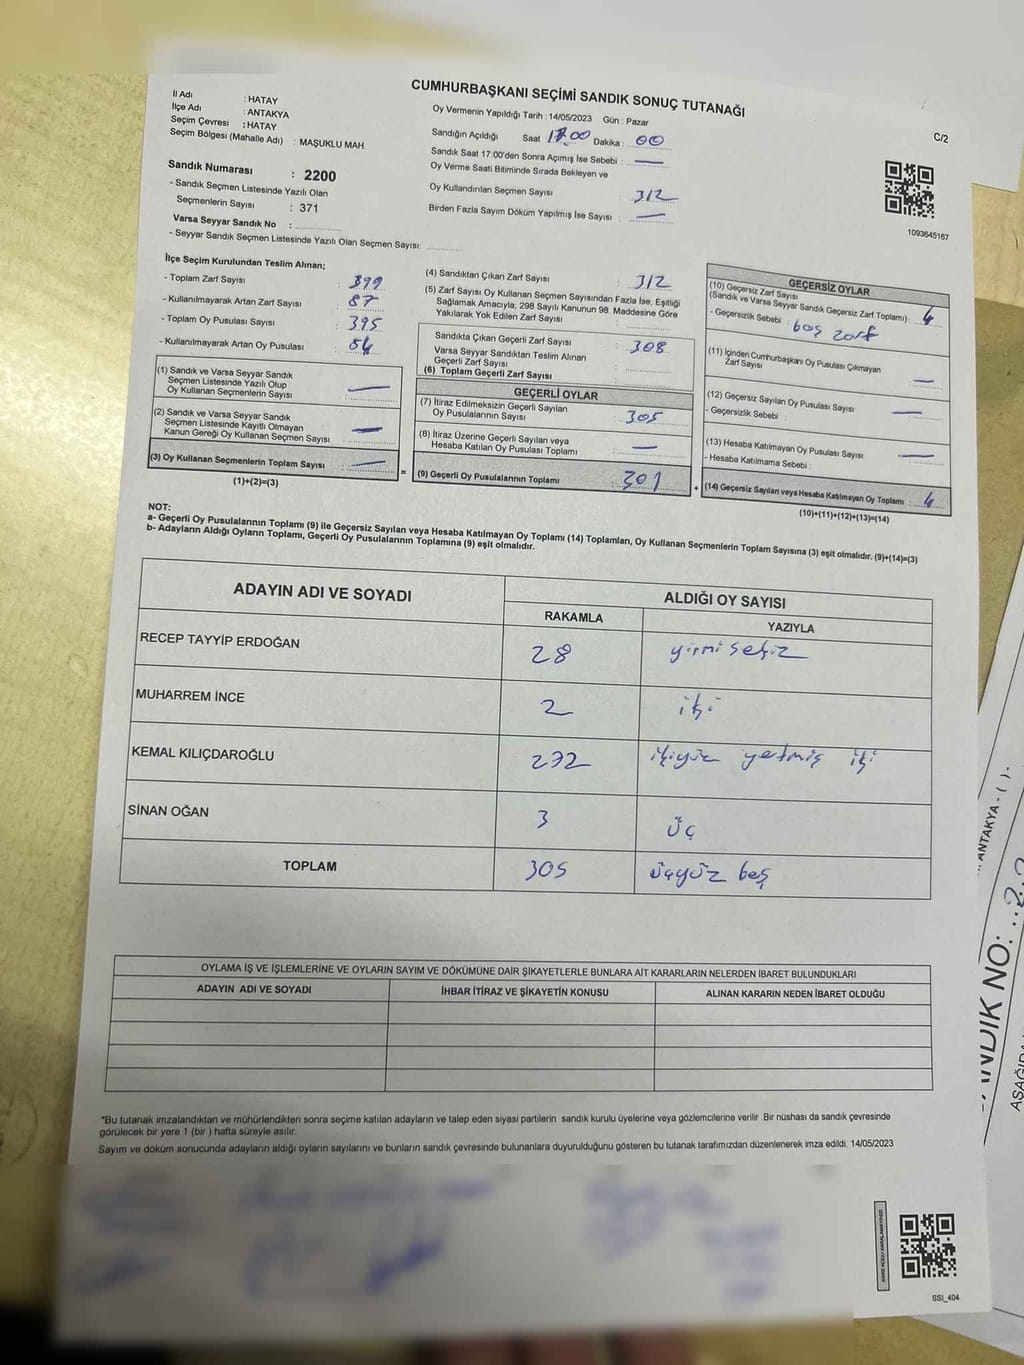 CUMHURBAŞKANI SEÇİMİ SANDIK SONUÇ TUTANAĞI
İl Adı : HATAY
İlçe Adı : ANTAKYA
Seçim Çevresi : HATAY
Seçim Bölgesi (Mahalle Adı) : MAŞUKLU MAH.
Sandık Numarası : 2200
- Sandık Seçmen Listesinde Yazılı Olan
Seçmenlerin Sayısı : 371
Varsa Seyyar Sandık No :
- Seyyar Sandık Seçmen Listesinde Yazılı Olan Seçmen Sayısı:
Oy Vermenin Yapıldığı Tarih : 14/05/2023 Gün : Pazar
Sandığın Açıldığı Saat 17.00 Dakika : 00
Sandık Saat 17.00'den Sonra Açımış İse Sebebi : —
Oy Verme Saati Bitiminde Sırada Bekleyen ve
Oy Kullandırılan Seçmen Sayısı : 312
Birden Fazla Sayım Döküm Yapılmış İse Sayısı : —
C/2
1093645167
İlçe Seçim Kurulundan Teslim Alınan;
- Toplam Zarf Sayısı : 399
- Kullanılmayarak Artan Zarf Sayısı : 87
- Toplam Oy Pusulası Sayısı : 395
- Kullanılmayarak Artan Oy Pusulası : 84
(1) Sandık ve Varsa Seyyar Sandık
Seçmen Listesinde Yazılı Olup
Oy Kullanan Seçmenlerin Sayısı : —
(2) Sandık ve Varsa Seyyar Sandık
Seçmen Listesinde Kayıtlı Olmayan
Kanun Gereği Oy Kullanan Seçmen Sayısı : —
(3) Oy Kullanan Seçmenlerin Toplam Sayısı : —
(1)+(2)=(3)
(4) Sandıktan Çıkan Zarf Sayısı : 312
(5) Zarf Sayısı Oy Kullanan Seçmen Sayısından Fazla İse, Eşitliği
Sağlamak Amacıyla; 298 Sayılı Kanunun 98. Maddesine Göre
Yakılarak Yok Edilen Zarf Sayısı :
Sandıkta Çıkan Geçerli Zarf Sayısı : 308
Varsa Seyyar Sandıktan Teslim Alınan
Geçerli Zarf Sayısı :
(6) Toplam Geçerli Zarf Sayısı :
GEÇERLİ OYLAR
(7) İtiraz Edilmeksizin Geçerli Sayılan
Oy Pusulalarının Sayısı : 305
(8) İtiraz Üzerine Geçerli Sayılan veya
Hesaba Katılan Oy Pusulası Toplamı : —
= (9) Geçerli Oy Pusulalarının Toplamı : 301
GEÇERSİZ OYLAR
(10) Geçersiz Zarf Sayısı
(Sandık ve Varsa Seyyar Sandık Geçersiz Zarf Toplamı) : 4
- Geçersizlik Sebebi : boş zarf
(11) İçinden Cumhurbaşkanı Oy Pusulası Çıkmayan
Zarf Sayısı : —
(12) Geçersiz Sayılan Oy Pusulası Sayısı : —
- Geçersizlik Sebebi :
(13) Hesaba Katılmayan Oy Pusulası Sayısı : —
- Hesaba Katılmama Sebebi :
+ (14) Geçersiz Sayılan veya Hesaba Katılmayan Oy Toplamı : 4
(10)+(11)+(12)+(13)=(14)
NOT:
a- Geçerli Oy Pusulalarının Toplamı (9) ile Geçersiz Sayılan veya Hesaba Katılmayan Oy Toplamı (14) Toplamları, Oy Kullanan Seçmenlerin Toplam Sayısına (3) eşit olmalıdır. (9)+(14)=(3)
b- Adayların Aldığı Oyların Toplamı, Geçerli Oy Pusulalarının Toplamına (9) eşit olmalıdır.
ADAYIN ADI VE SOYADI ALDIĞI OY SAYISI
RAKAMLA YAZIYLA
RECEP TAYYİP ERDOĞAN 28 yirmi sekiz
MUHARREM İNCE 2 iki
KEMAL KILIÇDAROĞLU 272 ikiyüz yetmiş iki
SİNAN OĞAN 3 üç
TOPLAM 305 üçyüz beş
OYLAMA İŞ VE İŞLEMLERİNE VE OYLARIN SAYIM VE DÖKÜMÜNE DAİR ŞİKAYETLERLE BUNLARA AİT KARARLARIN NELERDEN İBARET BULUNDUKLARI
ADAYIN ADI VE SOYADI İHBAR İTİRAZ VE ŞİKAYETİN KONUSU ALINAN KARARIN NEDEN İBARET OLDUĞU
*Bu tutanak imzalandıktan ve mühürlendikten sonra seçime katılan adayların ve talep eden siyasi partilerin sandık kurulu üyelerine veya gözlemcilerine verilir .Bir nüshası da sandık çevresinde
görülecek bir yere 1 (bir ) hafta süreyle asılır.
Sayım ve döküm sonucunda adayların aldığı oyların sayılarını ve bunların sandık çevresinde bulunanlara duyurulduğunu gösteren bu tutanak tarafımızdan düzenlenerek imza edildi. 14/05/2023
SSI_404
ANTAKYA - ( ) -
SANDIK NO: